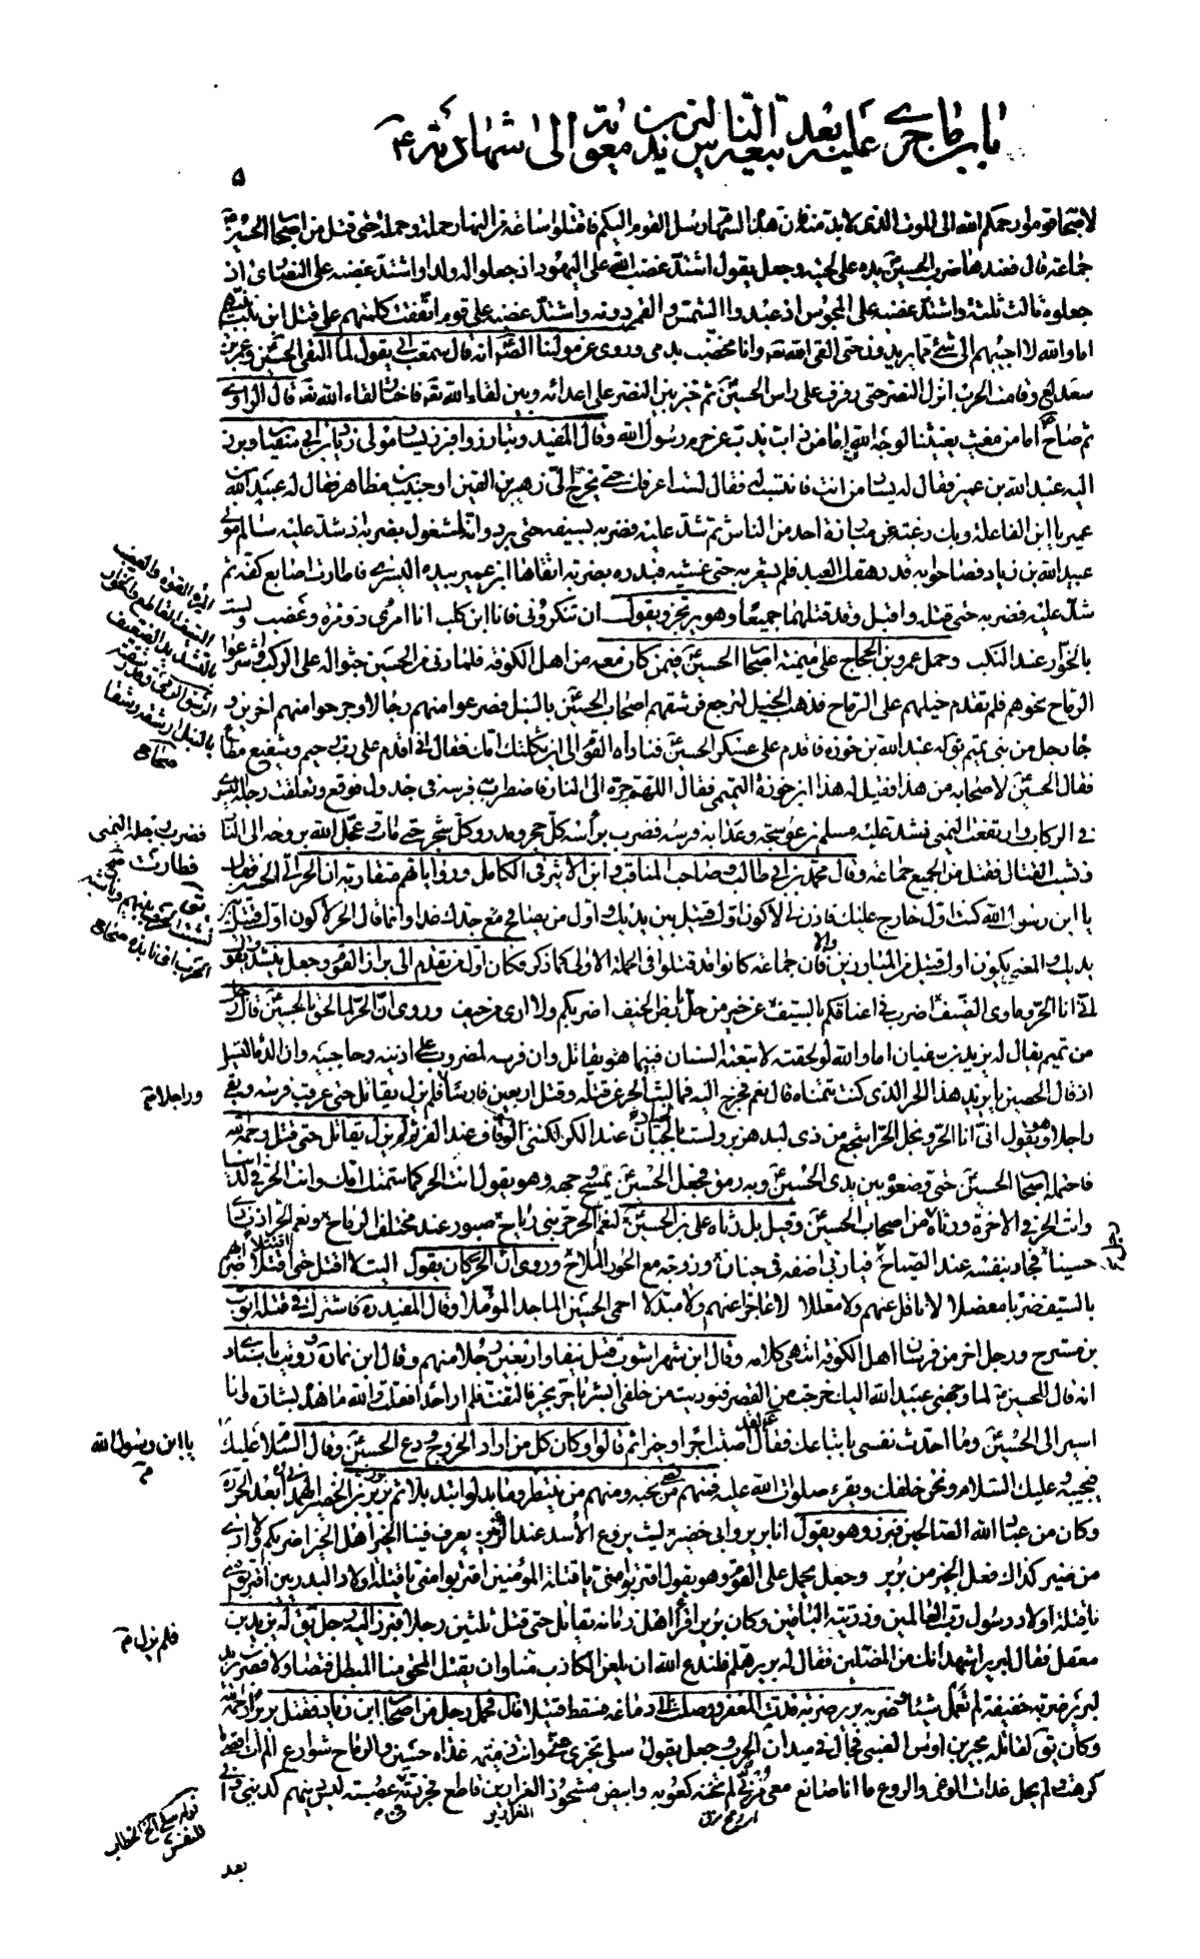 باب ما جرى عليه بعد بيعة الناس ليزيد بن معوية الى شهادته ع
٥
لاصحابه قوموا رحمكم الله الى الموت الذى لا بد منه فان هذه السهام رسل القوم اليكم فاقتتلوا ساعة من النهار حملة وحملة حتى قتل من اصحاب الحسين
جماعة قال فعندها ضرب الحسين يده على لحيته وجعل يقول اشتد غضب الله على اليهود اذ جعلوا له ولدا واشتد غضبه على النصارى اذ
جعلوه ثالث ثلثة واشتد غضبه على المجوس اذ عبدوا الشمس والقمر دونه واشتد غضبه على قوم اتفقت كلمتهم على قتل ابن بنت نبيهم
اما والله لا اجيبهم الى شئ مما يريدون حتى القى الله تعه وانا مخضب بدمى وروى عن مولنا الصادق انه قال سمعت ابى يقول لما التقى الحسين وعمر بن
سعد لع وقامت الحرب انزل النصر حتى رفرف على راس الحسين ثم خير بين النصر على اعدائه وبين لقاء الله تعه فاختار لقاء الله تعه قال الراوى
ثم صاح اما من مغيث يغيثنا لوجه الله اما من ذاب يذب عن حرم رسول الله وقال المفيد وتبارزوا فبرز يسار مولى زياد بن ابى سفيان وبرز
اليه عبد الله بن عمير فقال له يسار من انت فانتسب له فقال لست اعرفك حتى يخرج الى زهير بن القين او حبيب بن مظاهر فقال له عبد الله بن
عمير يا ابن الفاعلة وبك رغبة عن مبارزة احد من الناس ثم شد عليه فضربه بسيفه حتى برد وانه لمشغول بضربه اذ شد عليه سالم مولى
عبيد الله بن زياد فصاحوا به قد رهقك العبد فلم يشعر به حتى غشيه فبدره بضربة اتقاها ابن عمير بيده اليسرى فاطارت اصابع كفه ثم
شد عليه فضربه حتى قتله واقبل وقد قتلهما جميعا وهو يرتجز ويقول ان تنكرونى فانا ابن كلب انا امرئ ذو مرة وعصب ولست
بالخوار عند النكب وحمل عمرو بن الحجاج على ميمنة اصحاب الحسين فيمن كان معه من اهل الكوفة فلما دنى من الحسين جثوا له على الركب واشرعوا
الرماح نحوهم فلم تقدم خيلهم على الرماح فذهبت الخيل لترجع فرشقهم اصحاب الحسين بالنبل فصرعوا منهم رجالا وجرحوا منهم اخرين و
جاء رجل من بنى تميم يقال له عبد الله بن حوزة فاقدم على عسكر الحسين فناداه القوم الى اين ثكلتك امك فقال انى اقدم على رب رحيم وشفيع مطاع
فقال الحسين لاصحابه من هذا فقيل له هذا ابن حوزة التميمى فقال اللهم جره الى النار فاضطرب به فرسه فى جدول فوقع وتعلقت رجله اليسرى
فى الركاب وارتفعت اليمنى فشد عليه مسلم بن عوسجة وعدا به فرسه فضرب براسه كل حجر ومدر وكل شجر حتى مات وعجل الله بروحه الى النار
ونشب القتال فقتل من الجميع جماعة وقال محمد بن ابى طالب وصاحب المناقب وابن الاثير فى الكامل ورواياتهم متقاربة ان الحر اتى الحسين فقال
يا ابن رسول الله كنت اول خارج عليك فاذن لى لاكون اول قتيل بين يديك واول من يصافح جدك غدا وانما قال الحر لاكون اول قتيل بين
يديك والمعنى يكون اول قتيل من المبارزين والا فان جماعة كانوا قد قتلوا فى الحملة الاولى كما ذكر فكان اول من تقدم الى براز القوم وجعل ينشد ويقول
انى انا الحر وماوى الضيف اضرب فى اعناقكم بالسيف عن خير من حل بارض الخيف اضربكم ولا ارى من حيف وروى ان الحر لما لحق بالحسين قال رجل
من تميم يقال له يزيد بن سفيان اما والله لو لحقته لاتبعته السنان فبينما هو يقاتل وان فرسه لمضروب على اذنيه وحاجبيه وان الدماء لتسيل
اذ قال الحصين يا يزيد هذا الحر الذى كنت تتمناه قال نعم فخرج اليه فما لبث الحر ان قتله وقتل اربعين فارسا فلم يزل يقاتل حتى عرقب فرسه وبقى
راجلا وهو يقول انى انا الحر ونجل الحر اشجع من ذى لبد هزبر ولست بالجبان عند الكر لكننى الوقاف عند الفر ثم لم يزل يقاتل حتى قتل رحمه الله
فاحتمله اصحاب الحسين حتى وضعوه بين يدى الحسين وبه رمق فجعل الحسين يمسح وجهه وهو يقول انت الحر كما سمتك امك وانت الحر فى الدنيا
وانت الحر فى الاخرة ورثاه من اصحاب الحسين وقيل بل رثاه على بن الحسين لنعم الحر حر بنى رياح صبور عند مختلف الرماح ونعم الحر اذ نادى
حسينا فجاد بنفسه عند الصباح فيا ربى اضفه فى جنان وزوجه مع الحور الملاح وروى ان الحر كان يقول اليت لا اقتل حتى اقتلا اضربهم
بالسيف ضربا معضلا لا ناقل عنهم ولا معللا لا عاجز عنهم ولا مبدلا احمى الحسين الماجد المؤملا وقال المفيد ره فاشترك فى قتله ايوب
بن مسرح ورجل اخر من فرسان اهل الكوفة انتهى كلامه وقال ابن شهر اشوب قتل نيفا واربعين رجلا منهم وقال ابن نما ورويت باسناد
انه قال للحسين لما وجهنى عبيد الله اليك خرجت من القصر فنوديت من خلفى ابشر يا حر بخير فالتفت فلم ار احدا فقلت والله ما هذه بشارة وانا
اسير الى الحسين وما احدث نفسى باتباعك فقال لقد اصبت اجرا وخيرا ثم قالوا وكان كل من اراد الخروج ودع الحسين وقال السلام عليك
فيجيبه وعليك السلام ونحن خلفك ويقرء صلوات الله عليه فمنهم من قضى نحبه ومنهم من ينتظر وما بدلوا تبديلا ثم برز برير بن خضير الهمدانى بعد الحر
وكان من عباد الله الصالحين فبرز وهو يقول انا برير وابى خضير ليث يروع الاسد عند الزئر يعرف فينا الخير اهل الخير اضربكم ولا ارى
من ضير كذاك فعل الخير من برير وجعل يحمل على القوم وهو يقول اقتربوا منى يا قتلة المؤمنين اقتربوا منى يا قتلة اولاد البدريين اقتربوا منى
يا قتلة اولاد رسول رب العالمين وذريته الباقين وكان برير اقرأ اهل زمانه فقاتل حتى قتل ثلثين رجلا فبرز اليه رجل يق له يزيد بن
معقل فقال لبرير اشهد انك من المضلين فقال له برير هلم فلندع الله ان يلعن الكاذب منا وان يقتل المحق منا المبطل فتصاولا فضرب يزيد
لبرير ضربة خفيفة لم تعمل شيئا وضربه برير ضربة قدت المغفر ووصلت الى دماغه فسقط قتيلا قال فحمل رجل من اصحاب ابن زياد فقتل بريرا رحمه الله
وكان يق لقاتله بحير بن اوس الضبى فجال فى ميدان الحرب وجعل يقول سلى تخبرى عنى وانت ذميمة غداة حسين والرماح شوارع الم ات اقصى
كرهت ولم يحل غداة الوغى والروع ما انا صانع معى مزنى لم تخنه كعوبه وابيض مشحوذ الغرارين قاطع فجردته فى عصبة ليس دينهم كدينى وانى
بعد
المرة القوة والعضب
السيف القاطع والخوار
بالتشديد الضعيف
صحاح
فضرب رجله اليمنى
فطارت
صحاح
وراجلا
يا ابن رسول الله
فلم يزل
قوله سلى الخ الخطاب
للنفس